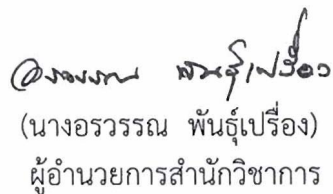 อรวรรณ พันธุ์เปรื่อง
(นางอรวรรณ พันธุ์เปรื่อง)
ผู้อำนวยการสำนักวิชาการ